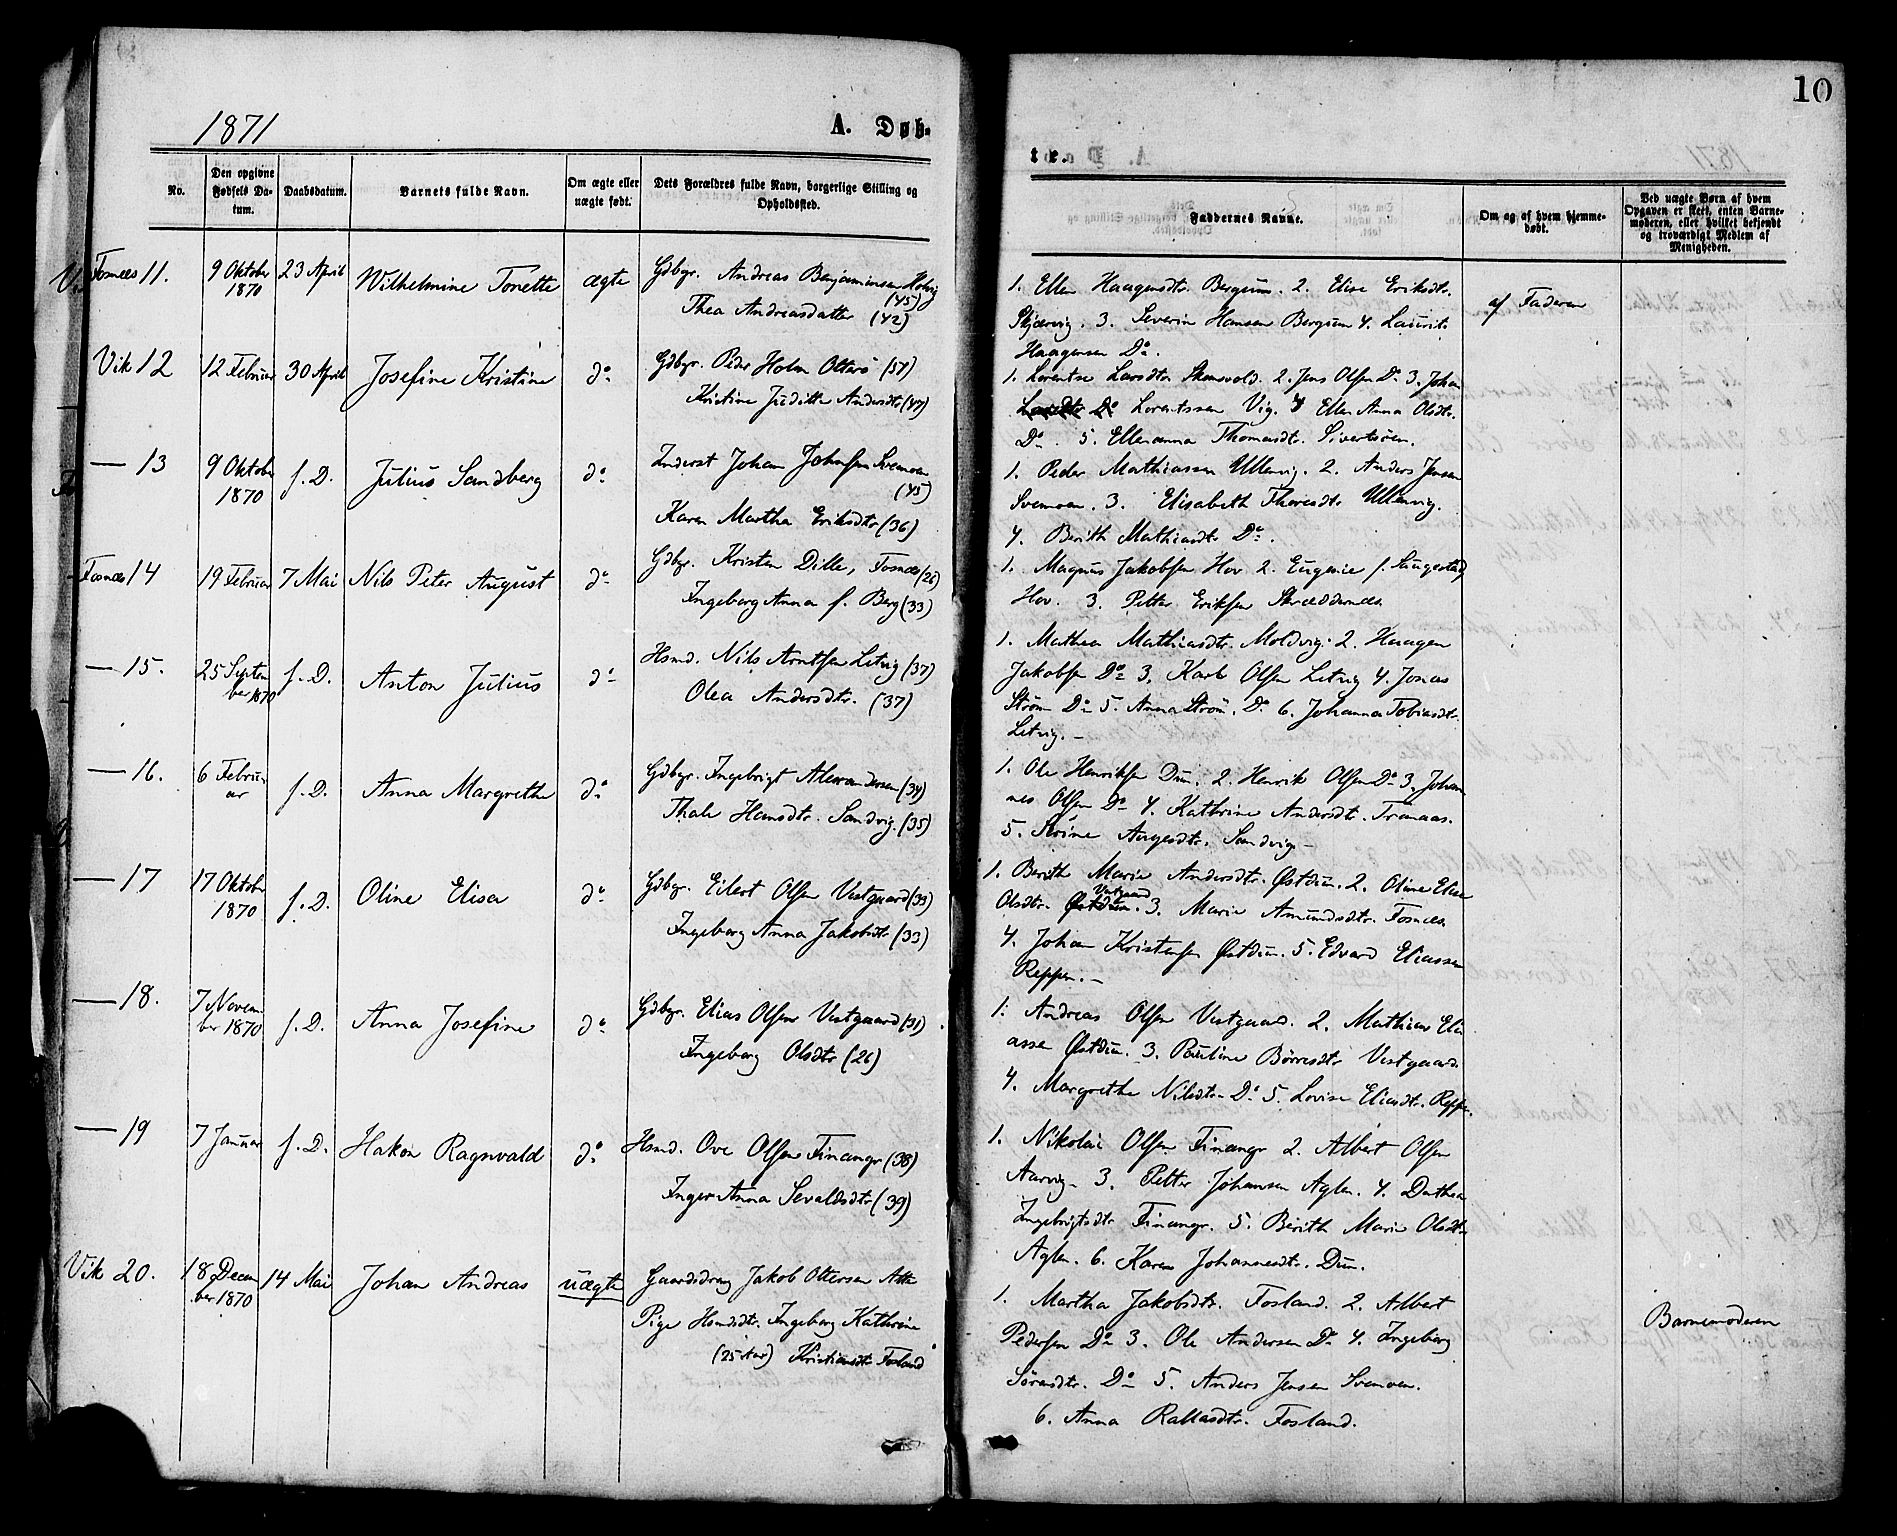 1871
A. Døb-
No.
Den opgivne Fødsels Datum.
Daabsdatum.
Barnets fulde Navn.
Om ægte eller uægte født.
Dets Forældres fulde Navn, borgerlige Stilling og Opholdssted.
Fosnæs 11. 9 Oktober 1870 23 April Wilhelmine Tonette ægte Gdbgr. Andreas Benjaminsen Holvig (45)
Thea Andreasdatter (42)
Vik 12 12 Februar 30 April Josefine Kristine do Gdbgr. Peder Holm Otterö (57)
Kristine Juditte Andersdtr (47)
— 13 9 Oktober 1870 s. D. Julius Sandberg do Inderst Johan Johnsen Svemoen (45)
Karen Martha Eriksdtr (36)
Fosnæs 14 19 Februar 7 Mai Nils Peter August do Gdbgr. Kristen Dille, Fosnæs (26)
Ingeborg Anna f. Berg (33)
— 15. 25 September 1870 s. D. Anton Julius do Hsmd. Nils Arntsen Letvig (37)
Olea Andersdtr. (37)
— 16. 6 Februar s. D. Anna Margrethe do Gdbgr. Ingebrigt Alexandersen (34)
Thale Hansdtr. Sandvig. (35)
— 17 17 Oktober 1870 s. D. Oline Elisa do Gdbgr. Eilert Olsen Vestgaard (33)
Ingeborg Anna Jakobsdtr (33)
— 18. 7 November 1870 s. D. Anna Josefine do Gdbgr. Elias Olsen Vestgaard (31)
Ingeborg Olsdtr (26)
— 19 7 Januar s. D. Hakon Ragnvald do Hsmd. Ove Olsen Finangr (38)
Inger Anna Sevaldsdtr (39)
Vik 20. 18 December 1870 14 Mai Johan Andreas uægte Gaardsdreng Jakob Ottersen
Pige Hsmdsdtr. Ingeborg Kathrine
(25 Aar) Kristiansdtr Fosland
10
te.
Faddernes Navne.
Om og af hvem hjemmedøbt.
Ved uægte Børn af hvem Opgaven er skeet, enten Barnemoderen, eller hvilket bekjendt og troværdigt Medlem af Menigheden.
1. Ellen Haagensdtr. Bergum. 2. Elise Eriksdtr.
Skjærvig. 3. Severin Hansen Bergum 4. Laurits
Haagensen Do.
af Faderen
1. Lorentse Larsdtr. Skenvold. 2. Jens Olsen Do 3. Johan
Lorentssen Vig. 4 Ellen Anna Olsdtr.
Do. 5. Ellenanna Thomasdtr. Sivertsöen.
1. Peder Mathiassen Ullervig. 2. Anders Jensen
Svemoen. 3. Elisabeth Thoresdtr. Ullervig.
4. Berith Mathiasdtr Do.
1. Magnus Jakobsen Hov 2. Eugenie f. Haugestad
Hov. 3. Petter Eriksen Skræddernæs.
1. Mathea Mathiasdtr. Moldvig. 2. Haagen
Jakobsen Do 3. Karl Olsen Letvig 4. Jonas
Ström Do 5. Anna Ström. Do 6. Johanna Tobiasdtr.
Letvig. —
1. Ole Henriksen Dun. 2. Henrik Olsen Do 3. Johan
nes Olsen Do 4. Kathrine Andersdtr. Tranaas.
5. Strine Aagesdtr. Sandvig —
1. Berith Marie Andersdtr. Østdun. 2. Oline Elise
Olsdtr. Østdun Vestgaard. 3. Marie Amundsdtr. Fosnæs
4. Johan Kristensen Østdun. 5. Edvard Eliassen
Reppen. —
1. Andreas Olsen Vestgaard. 2. Mathias Eli
assen Østdun. 3. Pauline Börresdtr Vestgaard.
4. Margrethe Nilsdtr. Do 5. Lovise Eliasdtr. Reppen.
1. Nikolai Olsen Finangr 2. Albert Olsen
Aarvig. 3. Petter Johansen Aglen. 4. Dorthea
Ingebrigtsdtr Finangr. 5. Berith Marie Olsdtr
Aglen. 6. Karen Johannesdtr. Dun.
1. Martha Jakobsdtr. Fosland. 2. Albert
Pedersen Do 3. Ole Andersen Do 4. Ingeborg
Sörensdtr. Do 5. Anders Jensen Svemoen.
6. Anna Rallasdtr. Fosland.
Barnemoderen